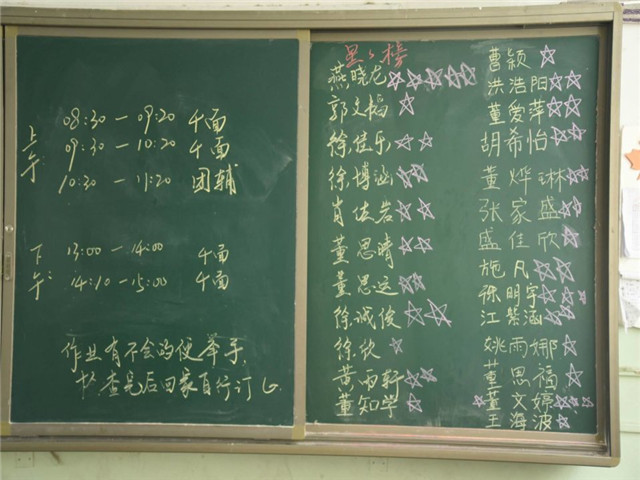 上午
08:30 — 09:20 个面
09:30 — 10:20 个面
10:30 — 11:20 团辅
下午:
13:00 — 14:00 个面
14:10 — 15:00 个面
作业有不会的便举手,
检查完后回家自行订正.
星星榜
燕晓龙
郭文楊
徐佳乐
徐博涵
肖佳岩
董思晴
董思远
徐诚俊
徐欣
黄雨轩
董知学
曹颖
洪浩阳
董爱萍
胡希怡
董烨琳
张家盛
盛佳欣
施凡
孫明宇
江紫涵
姚雨娜
董思福
董文婷
王海波